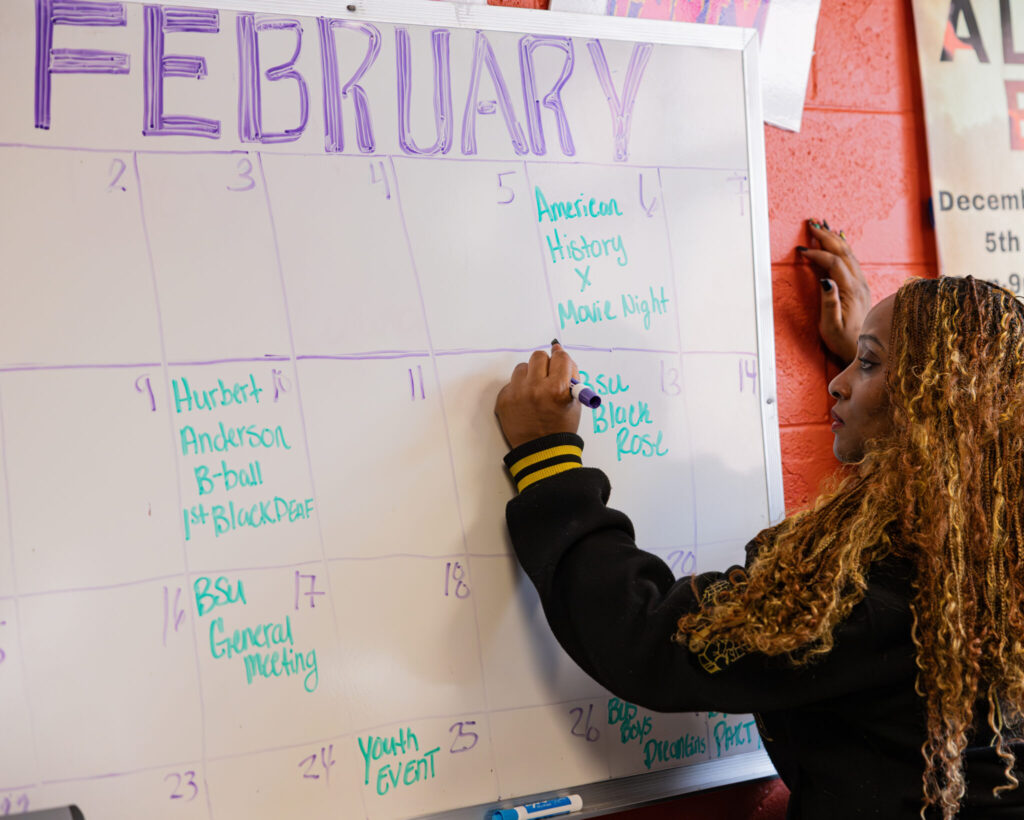 FEBRUARY
2
3
4
5
American 6
History
X
Movie Night
7
9
Hurbert 10
Anderson
B-ball
1st Black DEAF
11
BSU 13
Black
Rose
14
16
BSU 17
General
Meeting
18
20
23
24
Youth 25
EVENT
26
Boys
Dreamtins
PACT
Decemb
5th